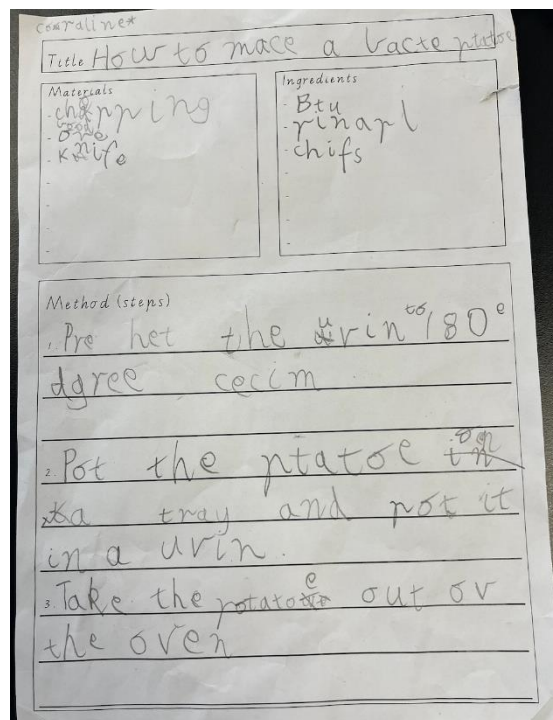 Coraline
Title How to mace a bacte ptatoe
Materials
- chopping
- ove
- Knife
Ingredients
- Btu
- rinarl
- chifs
Method (steps)
1. Pre het the urin to 180°
dgree cecim
2. Pot the ptatoe on
a tray and pot it
in a urin.
3. Take the potatoe out ov
the oven